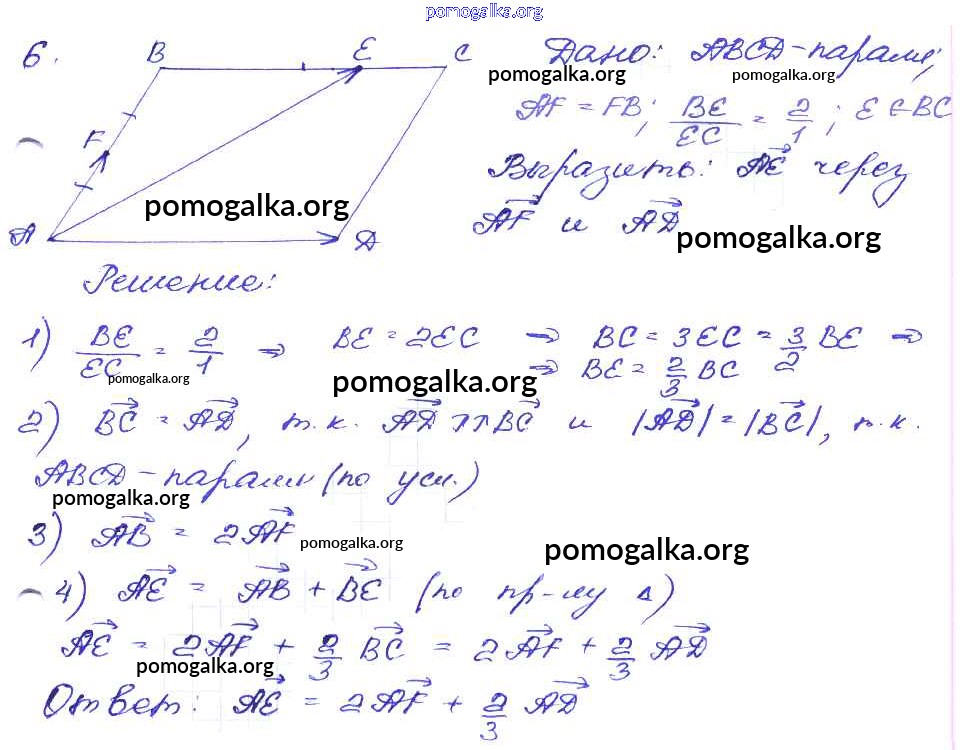 pomogalka.org
6.
B E C
F
A D
Дано: ABCD-парал.;
pomogalka.org pomogalka.org
AF = FB; BE/EC = 2/1; E ∈ BC
Выразить: AE через
pomogalka.org
AF и AD
pomogalka.org
Решение:
1) BE/EC = 2/1 ⇒ BE = 2EC ⇒ BC = 3EC = 3/2 BE ⇒
⇒ BE = 2/3 BC
pomogalka.org pomogalka.org
2) BC = AD, т.к. AD ↑↑ BC и |AD| = |BC|, т.к.
ABCD-парал. (по усл.)
pomogalka.org
3) AB = 2AF
pomogalka.org pomogalka.org
4) AE = AB + BE (по пр-лу Δ)
AE = 2AF + 2/3 BC = 2AF + 2/3 AD
pomogalka.org
Ответ: AE = 2AF + 2/3 AD